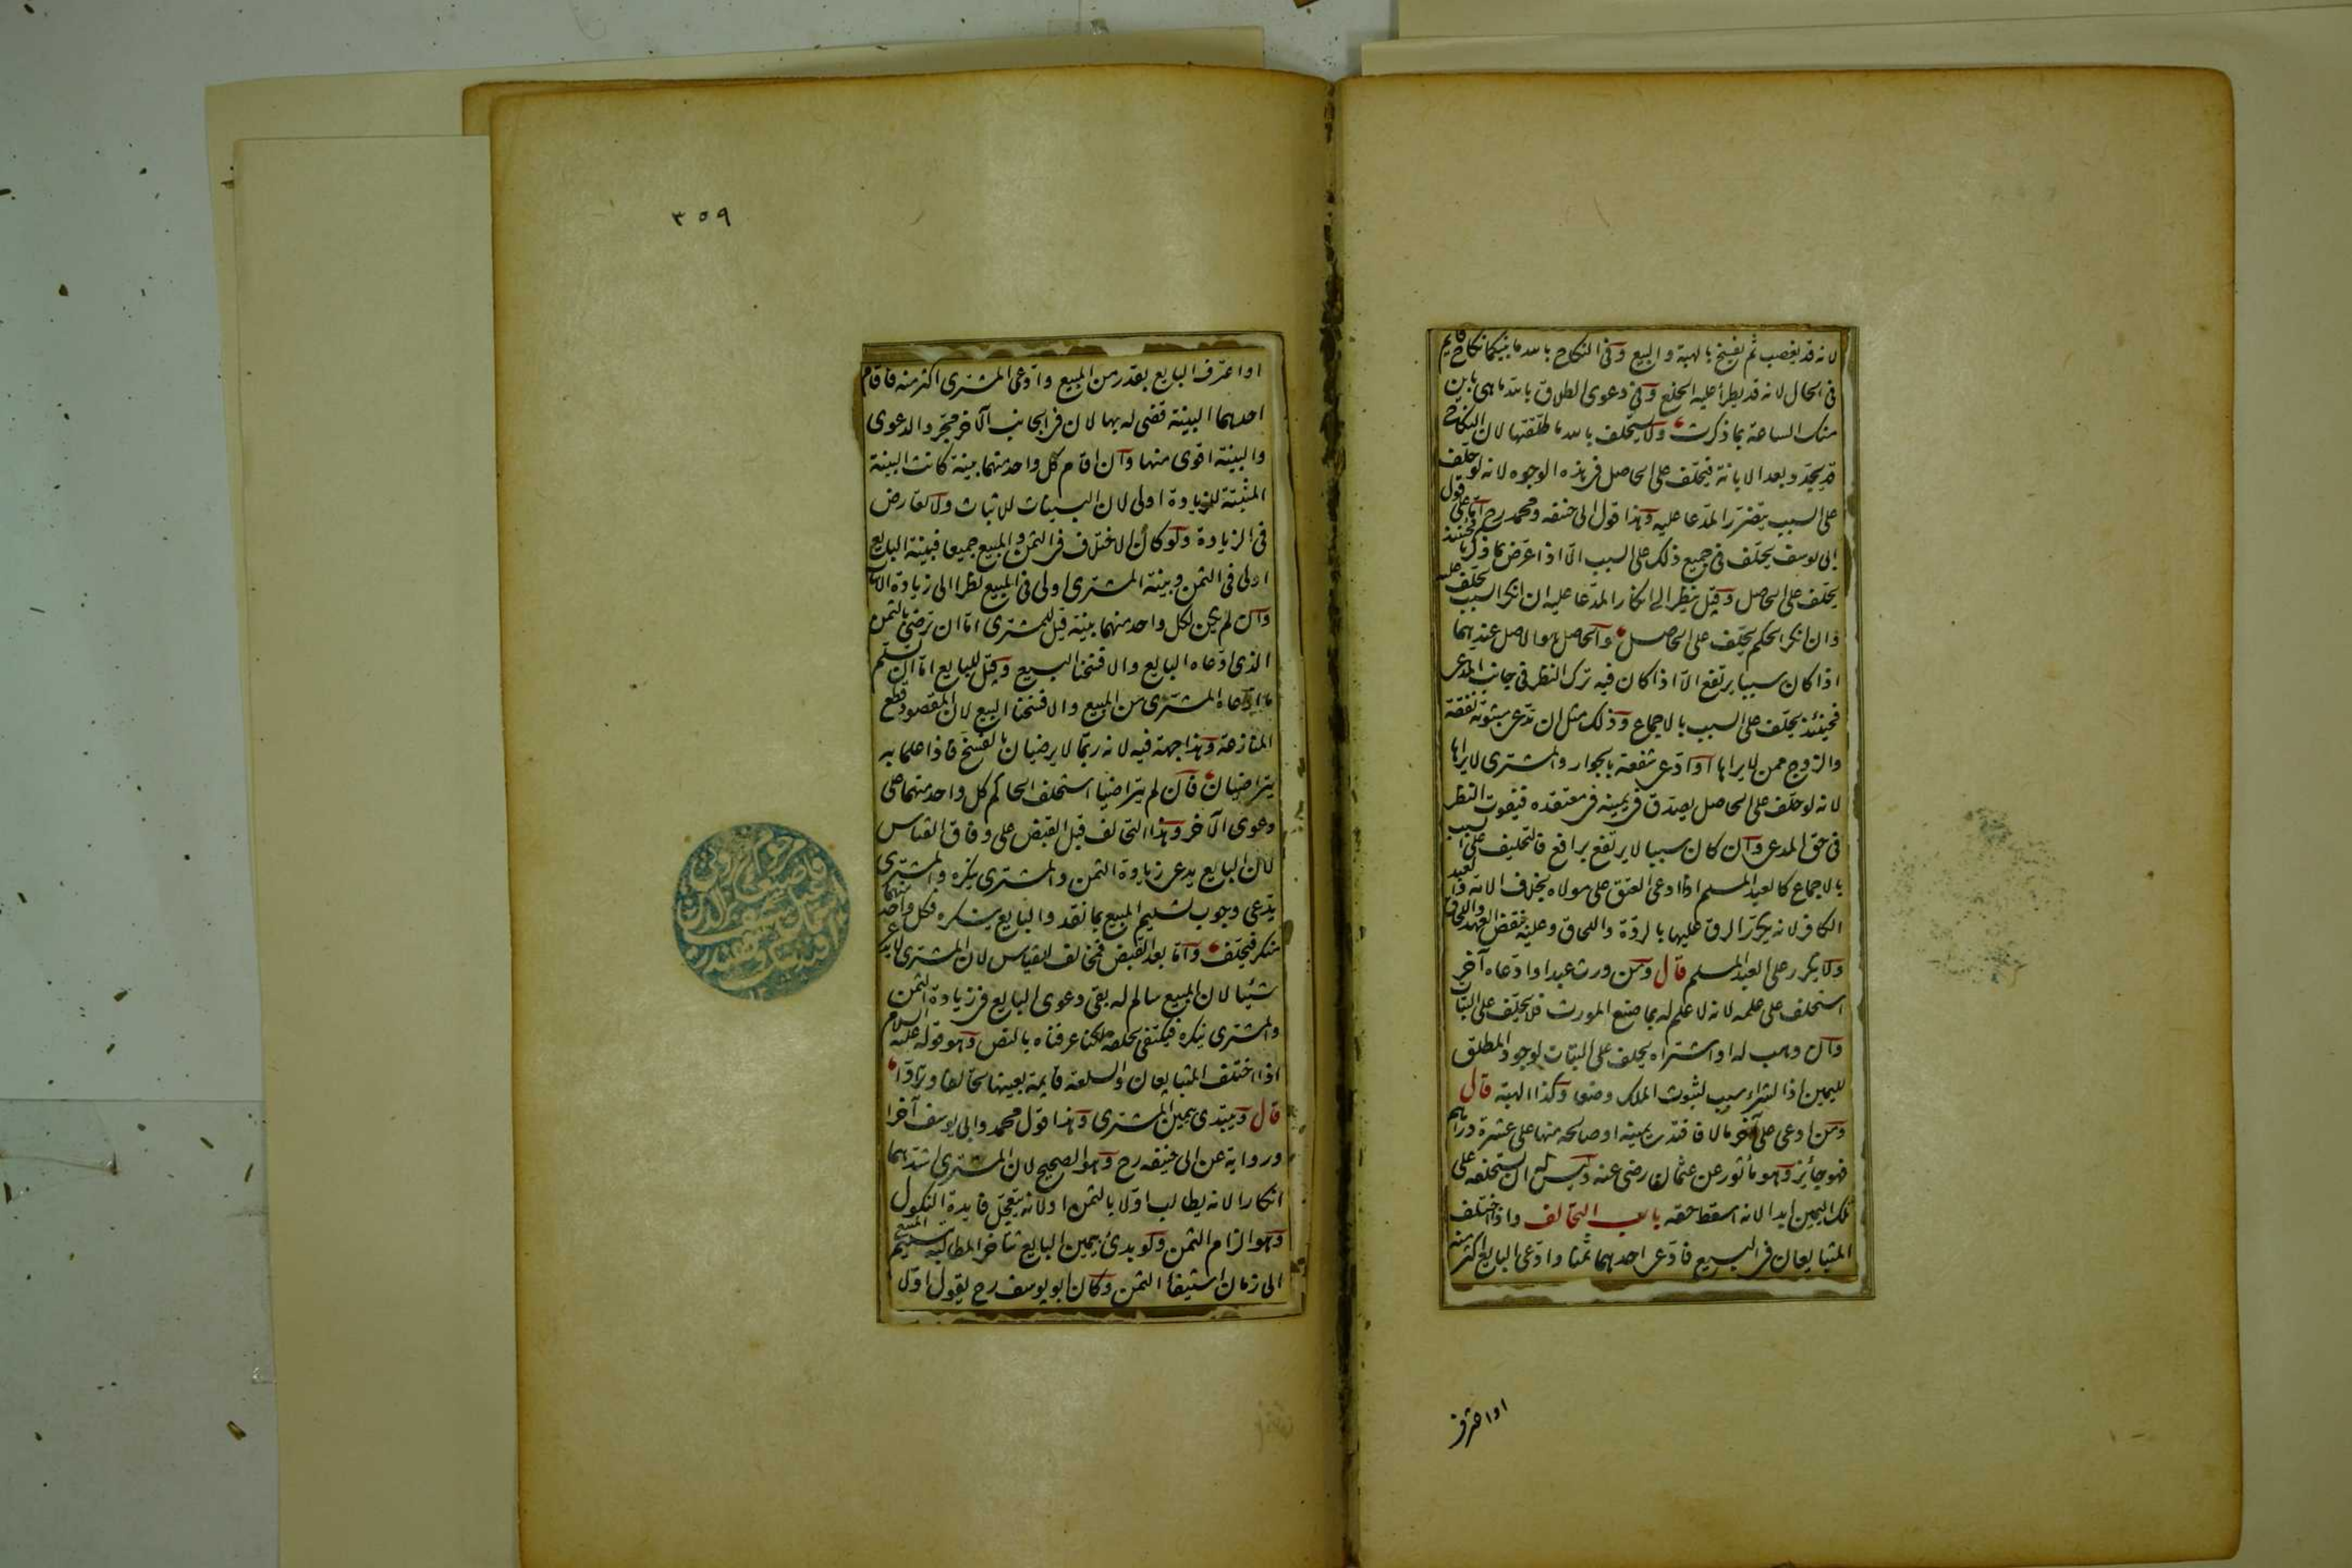 لانه قد يغصب ثم يفسخ بالهبة والبيع وفى النكاح بالله ما بينكما نكاح قايم
فى الحال لانه قد يطرأ عليه الخلع وفى دعوى الطلاق بالله ما هى باين
منك الساعة بما ذكرت ولا يستحلف بالله ما طلقتها لان النكاح
قد يجدد بعد الابانة فيحلف على الحاصل فى هذه الوجوه لانه لو حلف
على السبب يتضرر المدعا عليه وهذا قول ابى حنيفه ومحمد رح اما على قول
ابى يوسف يحلف فى جميع ذلك على السبب الا اذا عرض بما ذكرنا فحينئذ
يحلف على الحاصل وقيل ينظر الى انكار المدعا عليه ان انكر السبب يحلف عليه
وان انكر الحكم يحلف على الحاصل والحاصل هو الاصل عندهما
اذا كان سببا يرتفع الا اذا كان فيه ترك النظر فى جانب المدعى
فحينئذ يحلف على السبب بالاجماع وذلك مثل ان تدعى مبتوتة نفقة
والزوج ممن لا يراها او ادعى شفعة بالجوار والمشترى لا يراها
لانه لو حلف على الحاصل يصدق فى يمينه فى معتقده فيفوت النظر
فى حق المدعى وان كان سببا لا يرتفع برافع فالتحليف على السبب
بالاجماع كالعبد المسلم اذا ادعى العتق على مولاه بخلاف الامة والعبد
الكافر لانه يكرر الرق عليها بالردة واللحاق وعليه بنقض العهد واللحاق
ولا يكرر على العبد المسلم قال ومن ورث عبدا وادعاه آخر
استحلف على علمه لانه لا علم له بما صنع المورث فلا يحلف على البتات
وان وهب له او اشتراه يحلف على البتات لوجود المطلق
لليمين اذ الشراء سبب لثبوت الملك وضعا وكذا الهبة قال
ومن ادعى على آخر مالا فافتدى يمينه او صالحه منها على عشرة دراهم
فهو جائز وهو مأثور عن عثمان رضى عنه وليس له ان يستحلفه على
تلك اليمين ابدا لانه اسقط حقه باب التحالف واذا اختلف
المتبايعان فى البيع فادعى احدهما ثمنا وادعى البايع اكثر منه
او اعترف
٣٥٩
او اعترف البايع بقدر من المبيع وادعى المشترى اكثر منه فاقام
احدهما البينة قضى له بها لان فى الجانب الآخر مجرد الدعوى
والبينة اقوى منها وان اقام كل واحد منهما بينة كانت البينة
المثبتة للزيادة اولى لان البينات للاثبات ولا تعارض
فى الزيادة ولو كان الاختلاف فى الثمن والمبيع جميعا فبينة البايع
اولى فى الثمن وبينة المشترى اولى فى المبيع نظرا الى زيادة الاثبات
وان لم يكن لكل واحد منهما بينة قيل للمشترى اما ان ترضى بالثمن
الذى ادعاه البايع والا فسخنا البيع وقيل للبايع اما ان تسلم
ما ادعاه المشترى من المبيع والا فسخنا البيع لان المقصود قطع
المنازعة وهذا جهة فيه لانه ربما لا يرضيان بالفسخ فاذا علما به
يتراضيان فان لم يتراضيا استحلف الحاكم كل واحد منهما على
دعوى الآخر وهذا التحالف قبل القبض على وفاق القياس
لان البايع يدعى زيادة الثمن والمشترى ينكره والمشترى
يدعى وجوب تسليم المبيع بما نقد والبايع ينكره فكل واحد منهما
منكر فيحلف واما بعد القبض فمخالف للقياس لان المشترى لا يدعى
شيئا لان المبيع سالم له بقى دعوى البايع فى زيادة الثمن
والمشترى ينكره فيكتفى بحلفه لكنا عرفناه بالنص وهو قوله عليه السلام
اذا اختلف المتبايعان والسلعة قايمة بعينها تحالفا وترادا
قال ويبتدى بيمين المشترى وهذا قول محمد وابى يوسف آخرا
ورواية عن ابى حنيفه رح وهو الصحيح لان المشترى اشدهما
انكارا لانه يطالب اولا بالثمن او لانه يتعجل فايدة النكول
وهو الزام الثمن ولو بدئ بيمين البايع تتأخر المطالبة بتسليم المبيع
الى زمان استيفاء الثمن وكان ابو يوسف رح يقول اولا